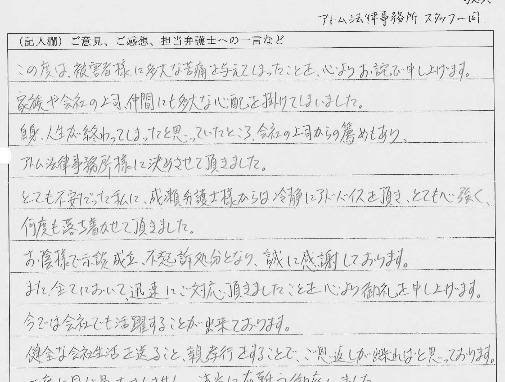 アトム法律事務所 スタッフ一同
(記入欄) ご意見、ご感想、担当弁護士への一言など
この度は、被害者様に多大な苦痛を与えてしまったことを、心よりお詫び申し上げます。
家族や会社の上司、仲間にも多大な心配を掛けてしまいました。
自身、人生が終わってしまったと思っていたところ、会社の上司からの薦めもあり、
アトム法律事務所様に決めさせて頂きました。
とても不安だった私に、成瀬弁護士様からは冷静にアドバイスを頂き、とても心強く、
何度も落ち着かせて頂きました。
お陰様で示談成立、不起訴処分となり、誠に感謝しております。
また、全てにおいて、迅速にご対応頂きましたことを心より御礼を申し上げます。
今では会社でも活躍することが出来ております。
健全な会社生活を送ること、親孝行をすることで、ご恩返しが出来ればと思っております。